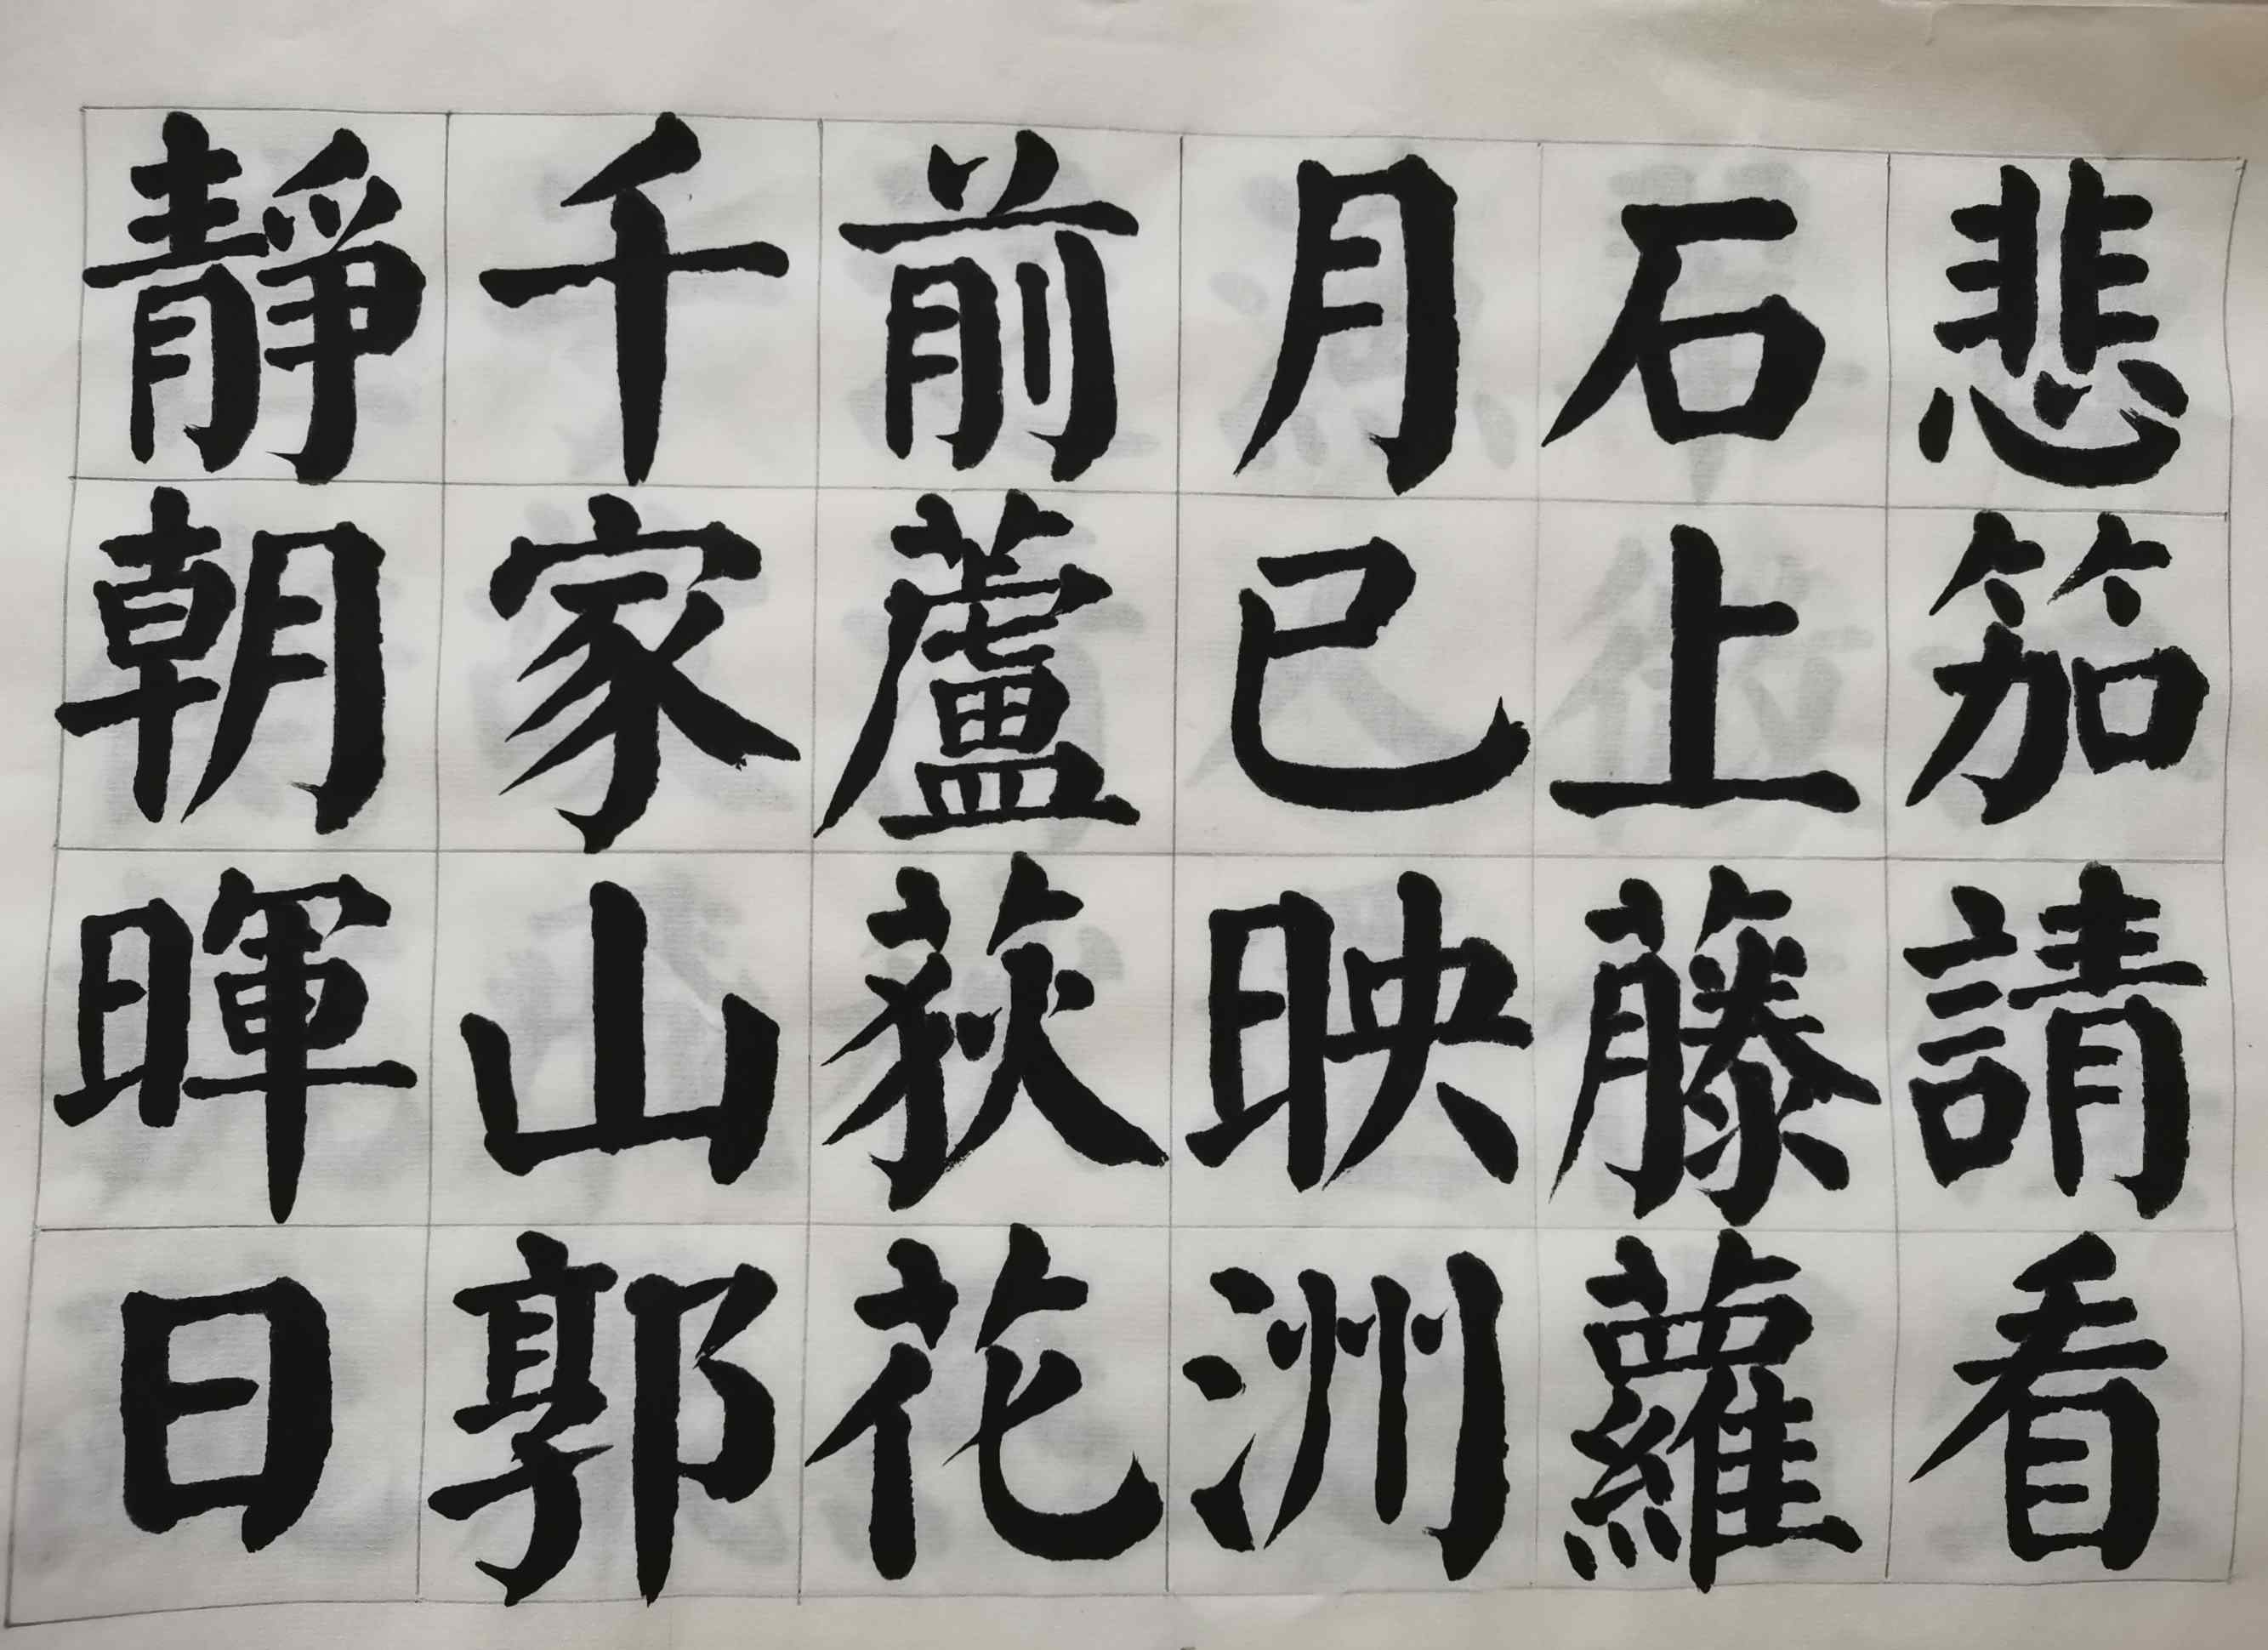 悲笳請看
石上藤蘿
月已映洲
前蘆荻花
千家山郭
靜朝暉日